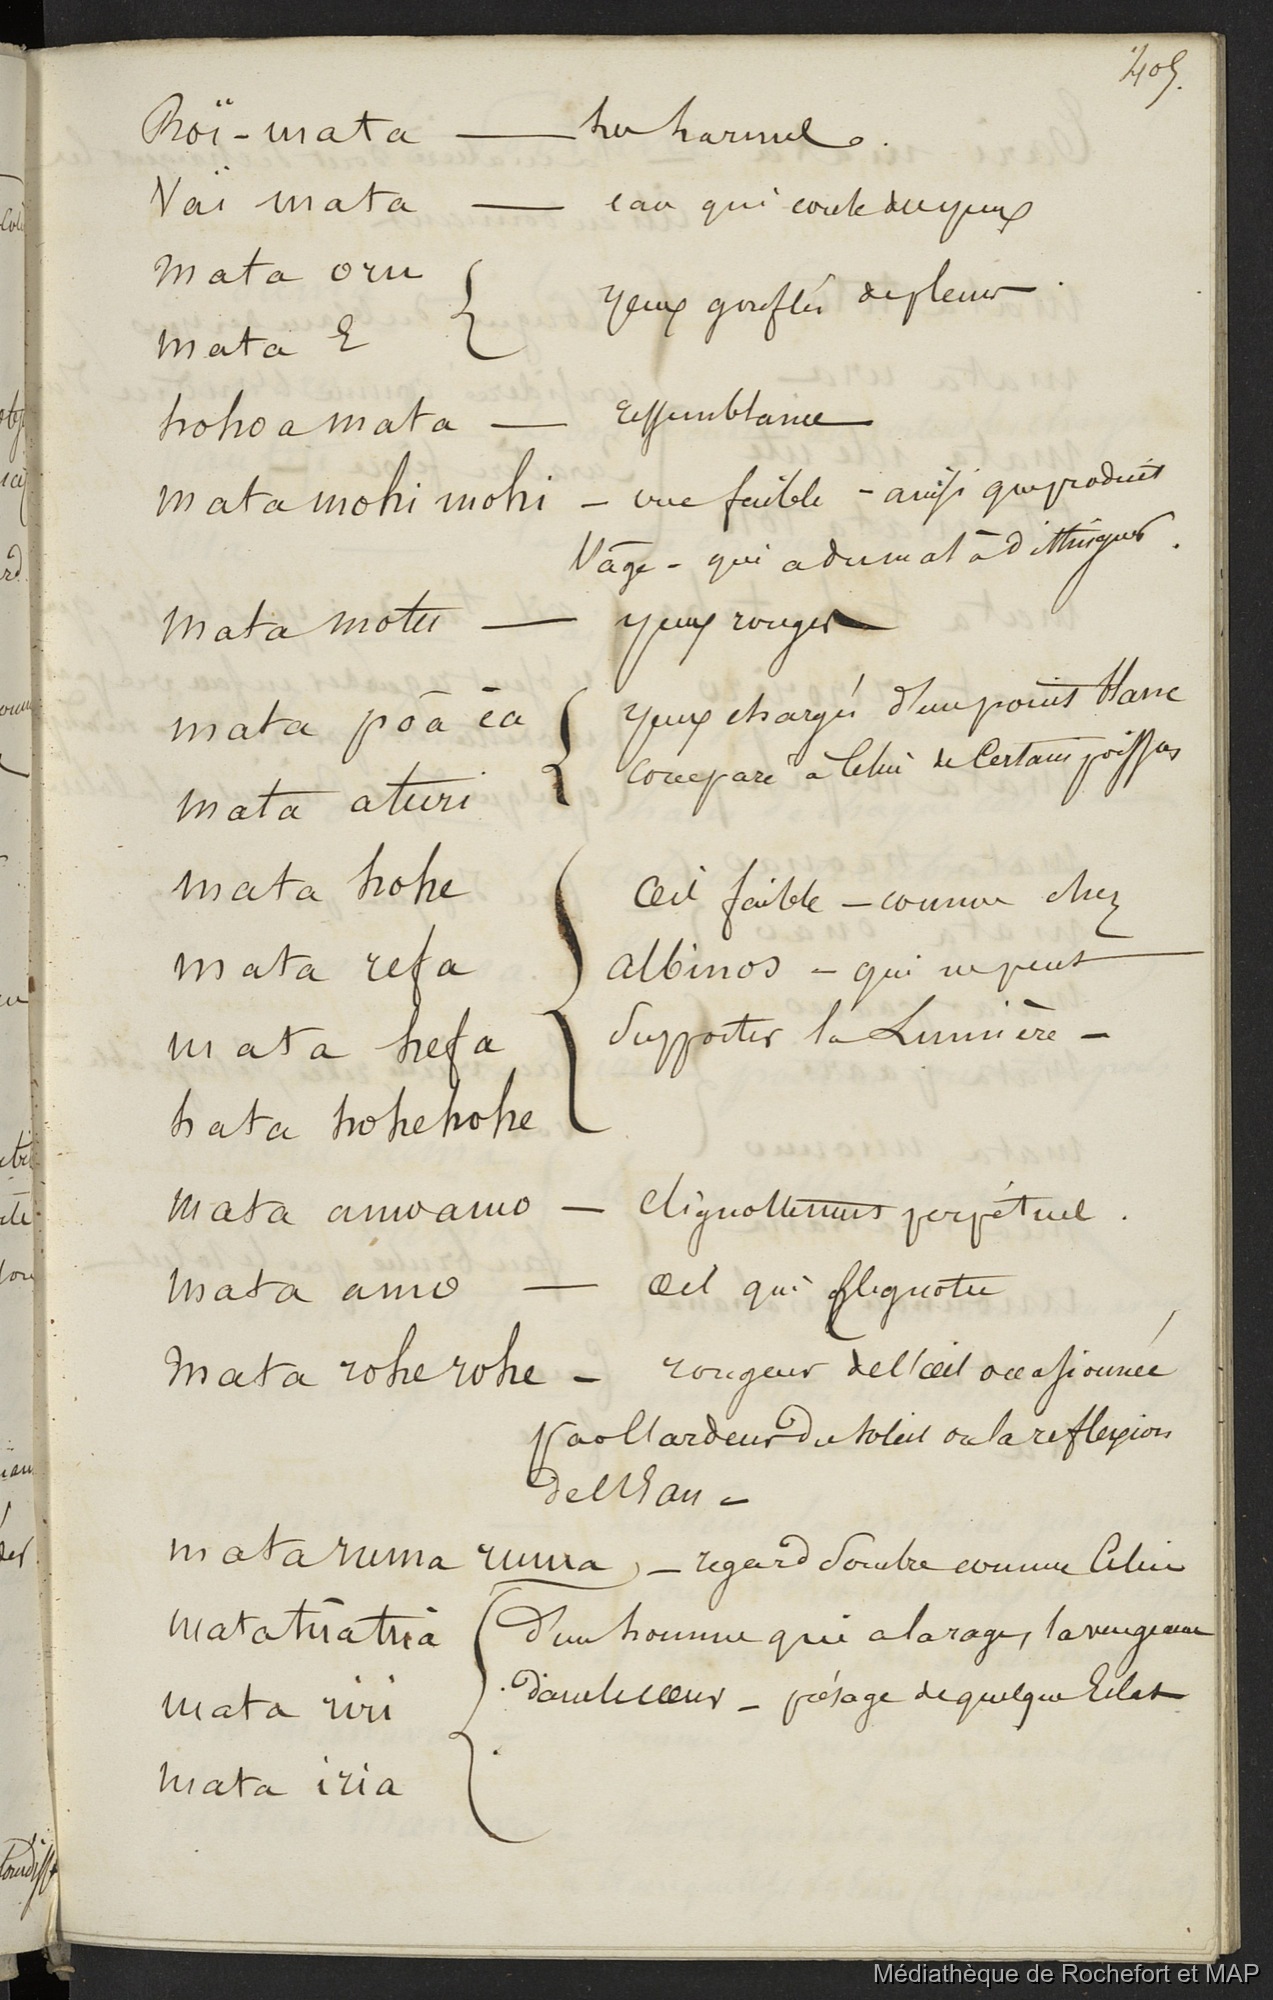 405.
Roï-mata — les larmes.
Vaï mata — eau qui coule des yeux
mata oru
mata E
yeux gonflés de pleurs.
hohoa mata — ressemblance
mata mohi mohi — vue faible - ainsi que produit
l'âge - qui a du mal à distinguer.
mata motu — yeux rouges
mata pōā ēa
mata aturi
yeux chargés d'un point blanc
comparé à celui de certains poissons
mata hohe
mata refa
mata hefa
hata hohehohe
œil faible — comme chez
albinos — qui ne peut
supporter la Lumière —
mata amoamo — clignottement perpétuel.
mata amo — œil qui clignotte
Mata roherohe — rougeur de l'œil occasionnée
par l'ardeur du soleil ou la reflexion
de l'Eau —
mataruma ruma — regard sombre comme celui
matatūatūā
mata riri
mata iria
d'un homme qui a la rage, la vengeance
dans le cœur — présage de quelque Eclat
Médiathèque de Rochefort et MAP